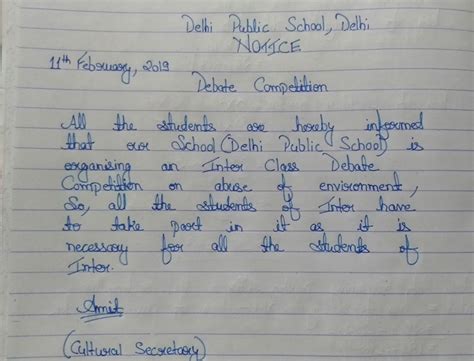 Delhi Public School, Delhi
NOTICE
11th February, 2019
Debate Competition
All the students are hereby informed
that our School (Delhi Public School) is
organising an Inter Class Debate
Competition on abuse of environment,
So, all the students of Inter have
to take part in it as it is
necessary for all the students of
Inter.
Amit
(Cultural Secretary)